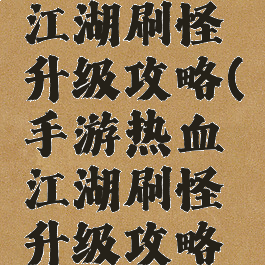 江湖刷怪
升级攻略(
手游热血
江湖刷怪
升级攻略